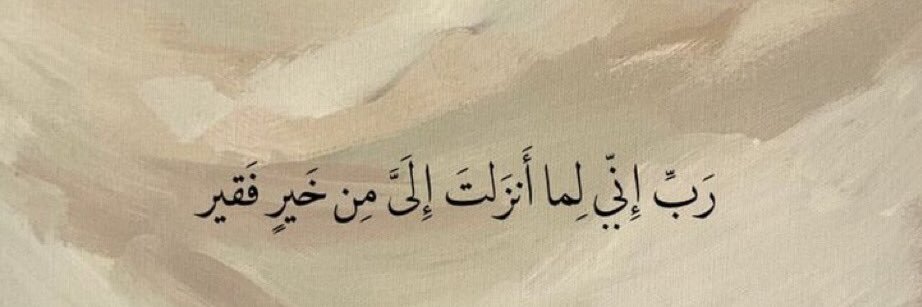 رَبِّ إِنِّي لِما أَنزَلتَ إِلَىَّ مِن خَيرٍ فَقير